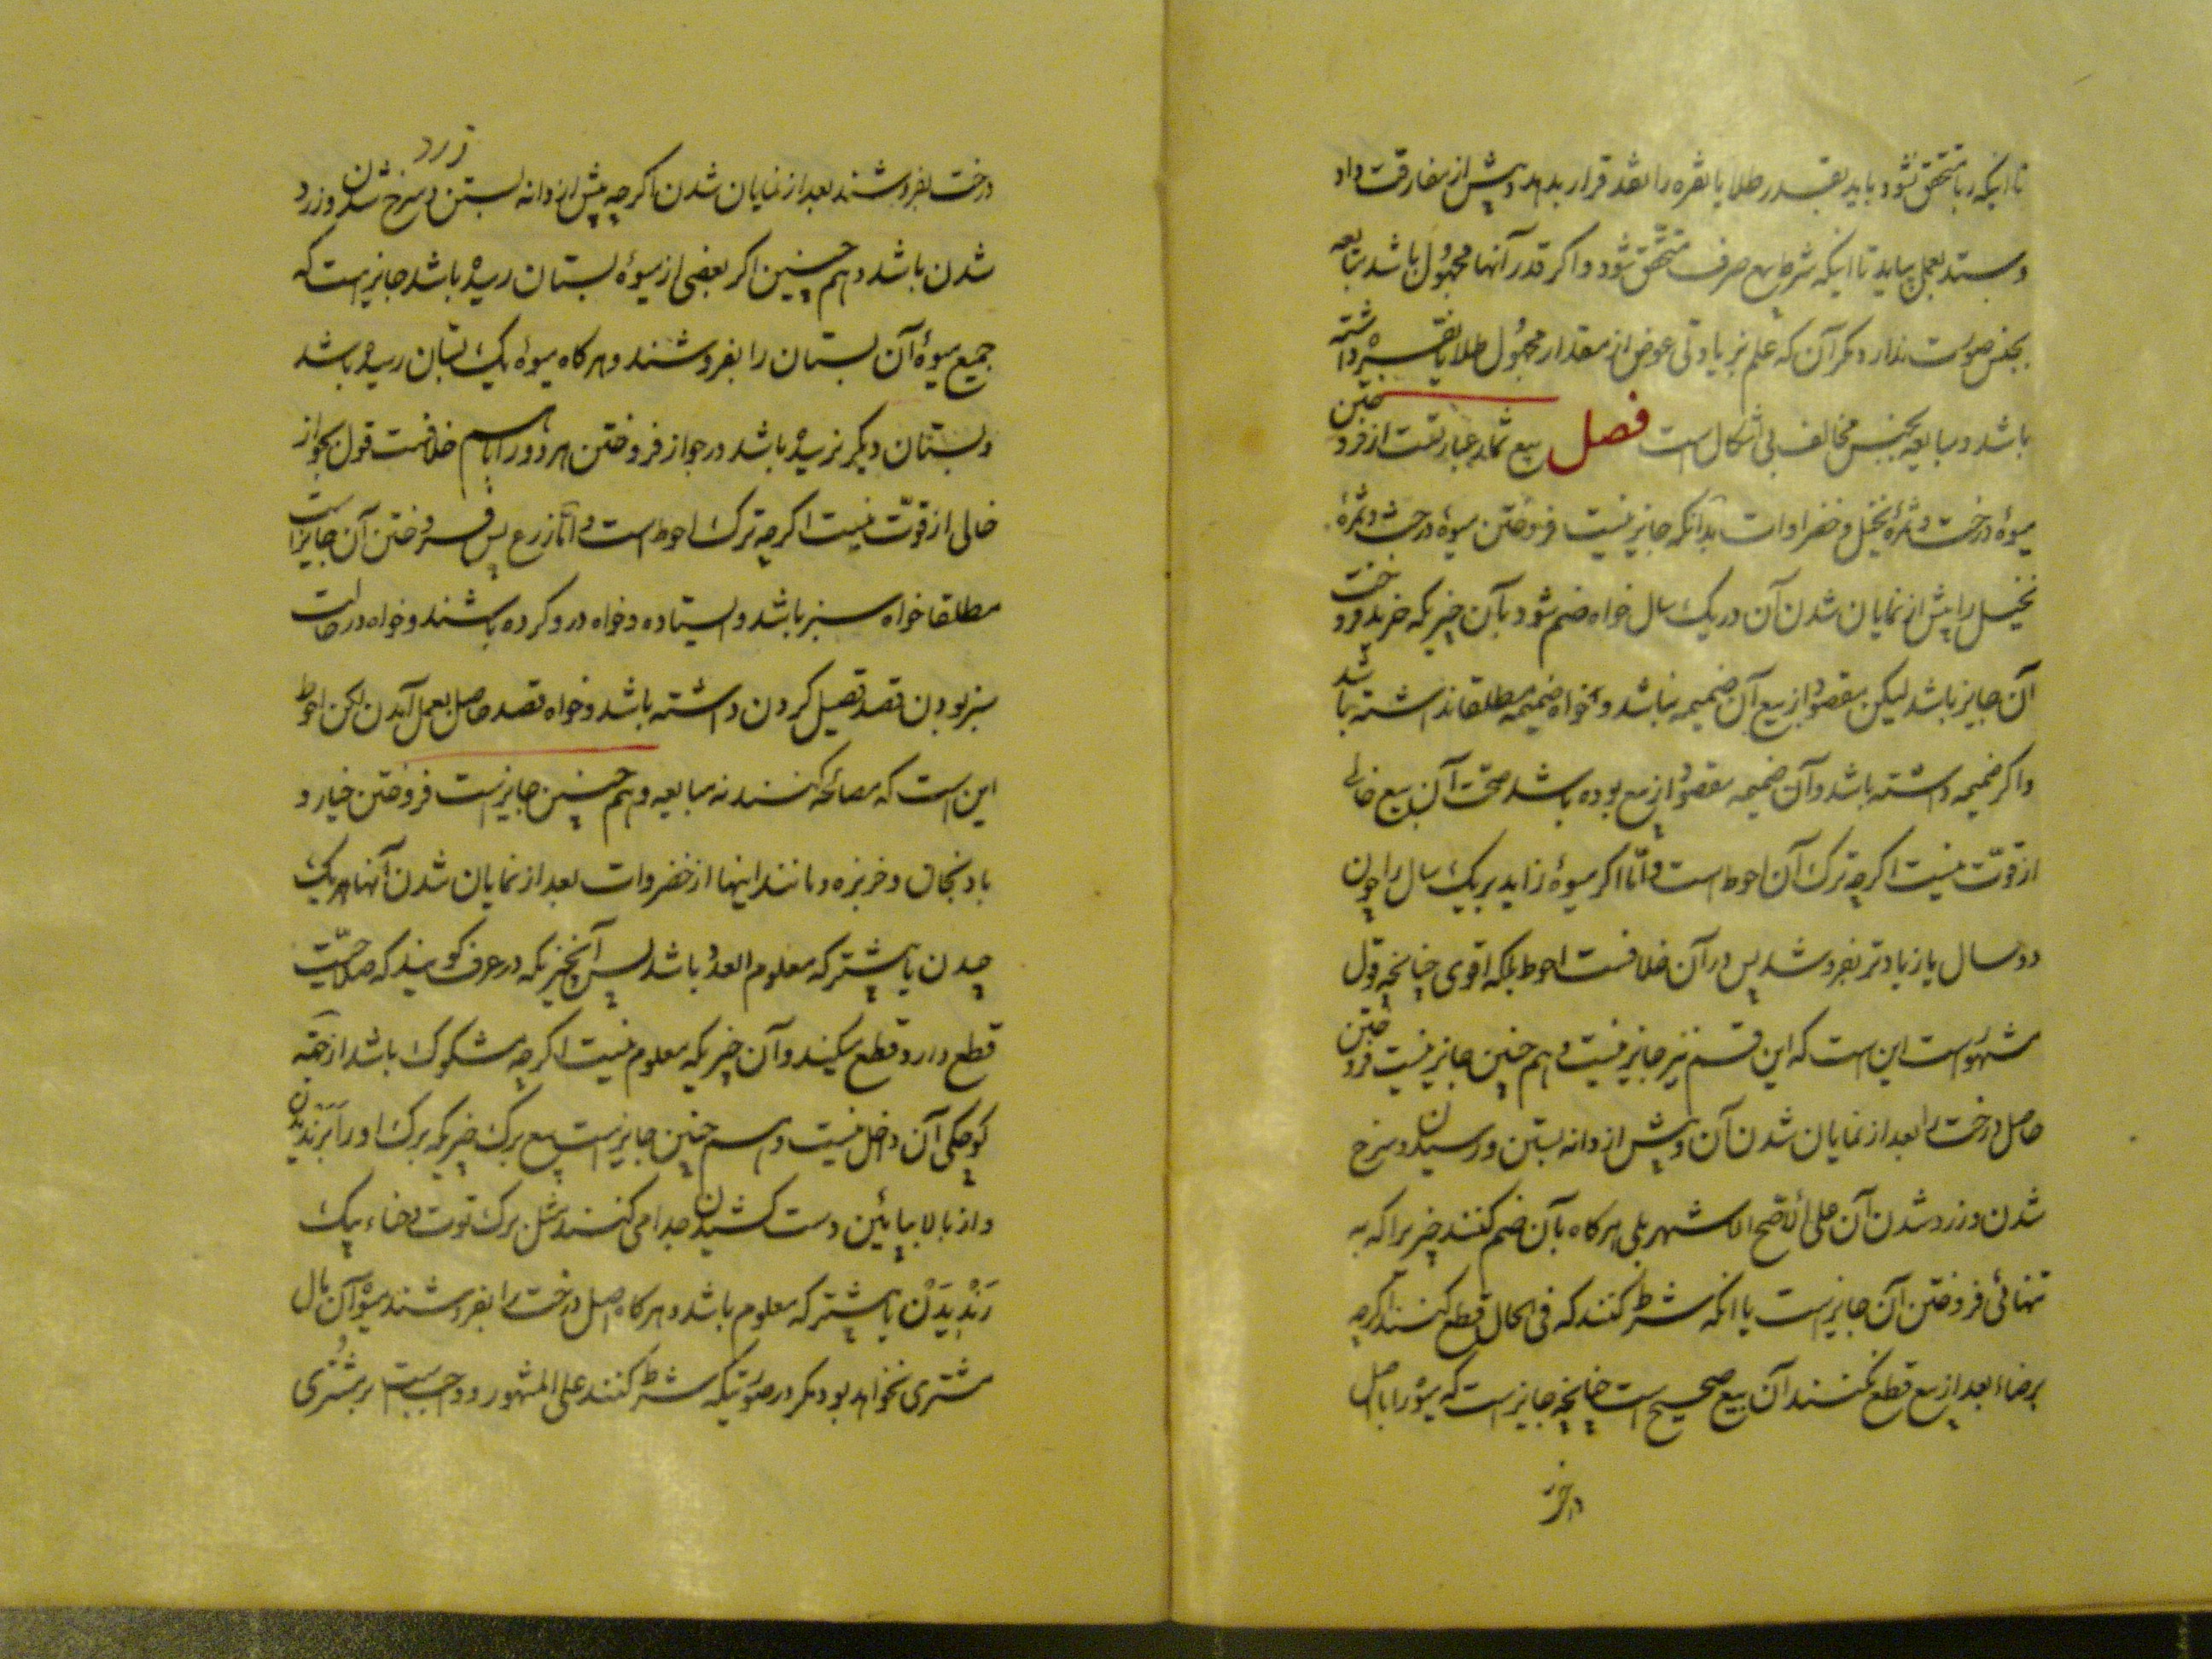 تا اینکه ربا متحقق نشود باید بقدر طلا یا نقره را نقد قرار بدهد و پیش از مفارقت داد
و ستد بعمل بیاید تا اینکه شرط بیع صرف متحقق شود و اگر قدر آنها مجهول باشد مبایعه
بجنس صورت ندارد مگر آن که علم بزیادتی عوض از مقدار مجهول طلا یا نقره داشته
باشد و مبایعه بجنس مخالف بی اشکال است فصل بیع ثمار عبارتست از فروختن
میوهٔ درخت و ثمرهٔ نخیل و خضراوات بدانکه جایز نیست فروختن میوهٔ درخت و ثمرهٔ
نخیل را پیش از نمایان شدن آن در یک سال خواه ضم شود بآن چیزیکه خرید و فروخت
آن جایز باشد لیکن مقصود از بیع آن ضمیمه نباشد و خواه ضمیمه مطلقا نداشته باشد
و اگر ضمیمه داشته باشد و آن ضمیمه مقصود از بیع بوده باشد صحت آن بیع خالی
از قوت نیست اگرچه ترک آن احوط است و اما اگر میوهٔ زاید بر یک سال را چون
دو سال یا زیادتر بفروشد پس در آن خلافست احوط بلکه اقوی چنانچه قول
مشهور است این است که این قسم نیز جایز نیست و هم چنین جایز نیست فروختن
حاصل درخت را بعد از نمایان شدن آن و پیش از دانه بستن و رسیدن و سرخ
شدن و زرد شدن آن علی الاصح الاشهر بلی هرگاه بآن ضم کنند چیز براکه به
تنهائی فروختن آن جایز است یا آنکه شرط کنند که فی الحال قطع کنند اگرچه
برضاء بعد از بیع قطع نکنند آن بیع صحیح است چنانچه جایز است که میوه را با اصل
درخت
درخت بفروشند بعد از نمایان شدن اگرچه پیش از دانه بستن و سرخ شدن و زرد
زرد
شدن باشد و هم چنین اگر بعضی از میوهٔ بستان رسیده باشد جایز است که
جمیع میوهٔ آن بستان را بفروشند و هرگاه میوهٔ یک بستان رسیده باشد
و بستان دیگر نرسیده باشد در جواز فروختن هر دو را با هم خلافست قول بجواز
خالی از قوت نیست اگرچه ترک احوط است و اما زرع پس فروختن آن جایز است
مطلقا خواه سبز باشد و ایستاده و خواه درو کرده باشند و خواه در حالت
سبز بودن قصد قصیل کردن داشته باشد و خواه قصد حاصل بعمل آمدن لکن احوط
این است که مصالحه کنند نه مبایعه و هم چنین جایز است فروختن خیار و
بادنجان و خربزه و مانند اینها از خضروات بعد از نمایان شدن آنها هر یک
چیدن یا بیشتر که معلوم العدد باشد پس آنچیزیکه در عرف گویند که صلاحیت
قطع دارد قطع میکند و آن چیزیکه معلوم نیست اگرچه مشکوک باشد از جهة
کوچکی آن داخل نیست و هم چنین جایز است بیع برگ چیزیکه برگ او را برندیدن
و از بالا بپائین دست کشیدن جدا می کنند مثل برگ توت و حناء بیک
رندیدن یا بیشتر که معلوم باشد و هرگاه اصل درخت را بفروشند میوهٔ آن مال
مشتری نخواهد بود مگر در صورتیکه شرط کنند علی المشهور و واجب است بر مشتری